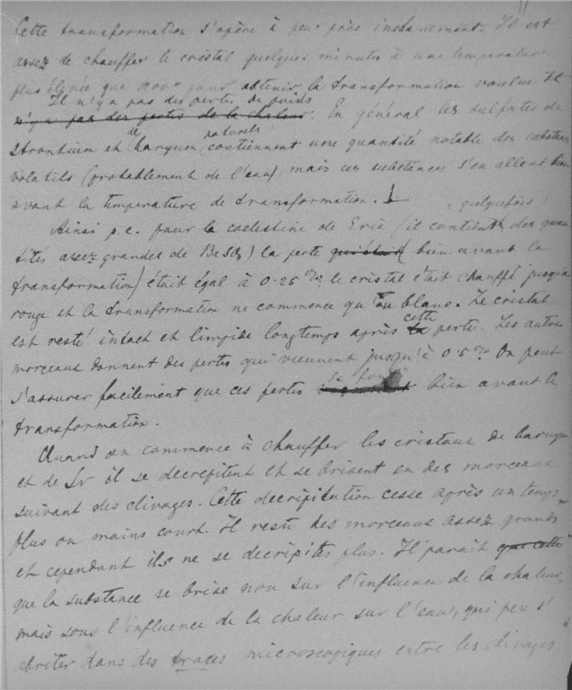 Cette transformation s'opère à peu près instanément. Il est
assez de chauffer le cristal quelques minutes à une temperature
plus élevée que pour obtenir la transformation voulue. Il
Il n'y a pas des pertes de poids
n'y a pas des pertes de la chaleur. En général les sulfates de
de naturels
strontium et baryum contiennent une quantité notable des substances
volatils (probablement de l'eau), mais ces substances s'en allent bien
avant la temperature de transformation.
quelquefois
Ainsi p.e. pour la coelestine de Erié (il contient des quan
tités assez grandes de BaSO4) la perte bien avant la
transformation) était égal à 0.25 %, le cristal était chauffé jusqu'à
rouge et la transformation ne commence qu'au blanc. Le cristal
cette
est resté intact et limpide longtemps après la perte. Les autres
morceaux donnent des pertes qui viennent jusqu'à 0.5 %. On peut
se font
s'assurer facilement que ces pertes bien avant la
transformation.
Quand on commence à chauffer les cristaux de baryum
et de Sr il se decrepitent et se brisent en des morceaux
suivant des clivages. Cette decripitation cesse après un temps
plus ou moins court. il reste des morceaux assez grands
et cependant ils ne se decripites plus. Il parait que cette
que la substance se brise non sur l'influence de la chaleur,
mais sous l'influence de la chaleur sur l'eau, qui peu s'
abriter dans des traces microscopiques entre les clivages.